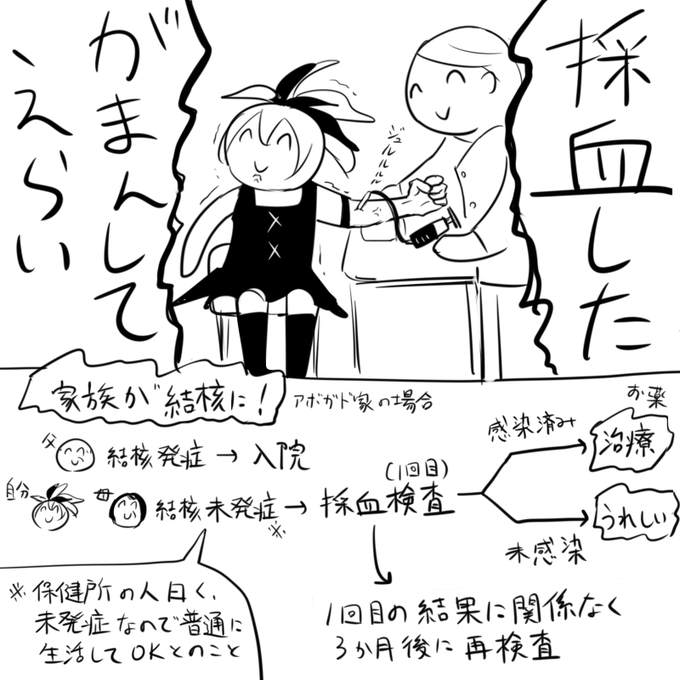 採血した
がまんして
えらい
ジュルルル
家族が結核に!
アボガド家の場合
父
結核発症→入院
自分
母
結核未発症→採血検査
※
(1回目)
感染済み
お薬
治療
未感染
うれしい
※保健所の人曰く、
未発症なので普通に
生活してOKとのこと
1回目の結果に関係なく
3か月後に再検査